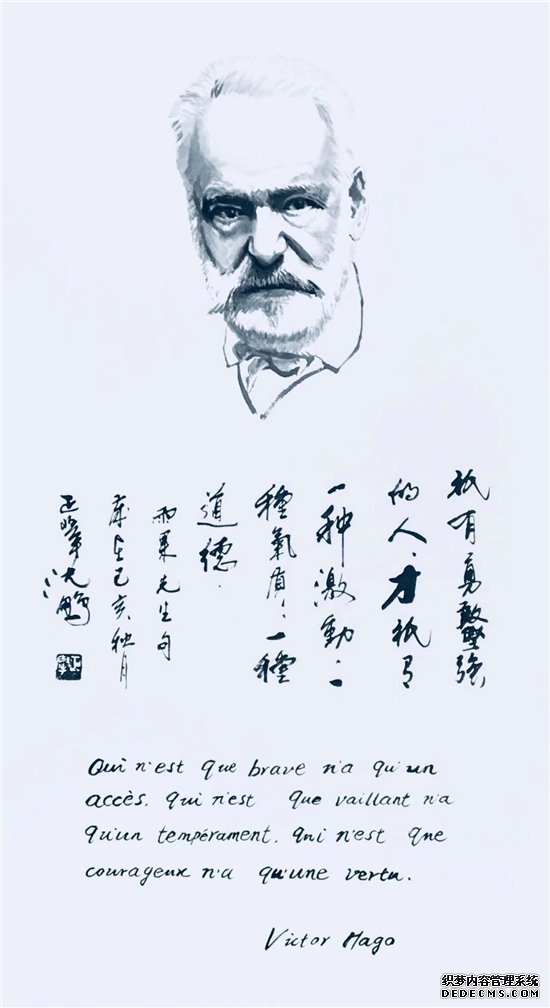 祇有勇敢堅強
的人,才祇有
一种激動,一
種氣質,一種
道德.
雨果先生句
己亥秋月
Qui n'est que brave n'a qu'un
accès. qui n'est que vaillant n'a
qu'un tempérament. qui n'est que
courageux n'a qu'une vertu.
Victor Hago
织梦内容管理系统
DEDECMS.COM